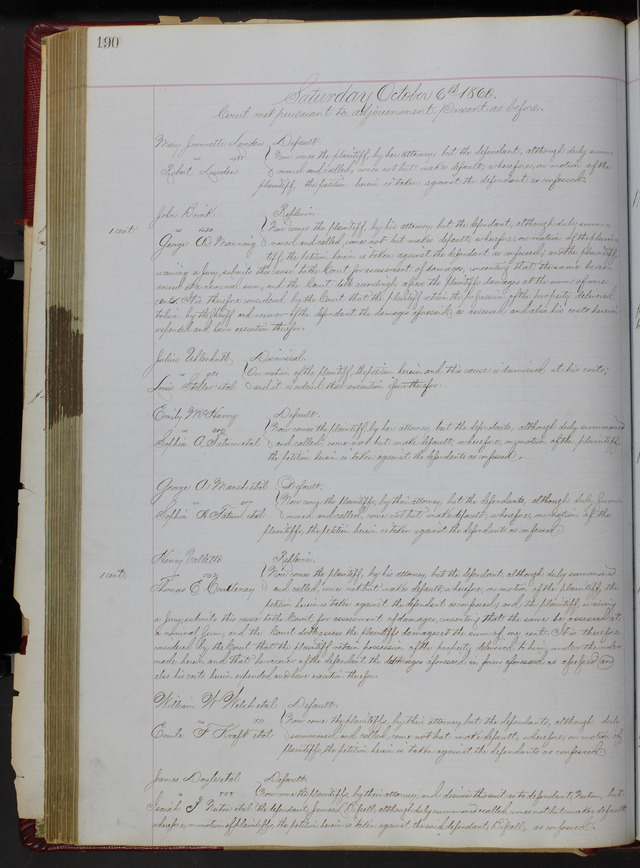 190
Saturday October 6th 1860.
Court met pursuant to adjournment; Present as before.
Mary Jeannette Louden Default.
Now comes the plaintiff, by her attorney, but the defendant, although duly summ-
Robert Louden oned and called, comes not but makes default; wherefore, on motion of the
plaintiff, the petition herein is taken against the defendant as confessed.
John Replevin.
Now comes the plaintiff by his attorney but the defendant, although duly summ-
1 cent
George R. Manning oned and called, comes not but makes default; wherefore, on motion of the plain-
tiff, the petition herein is taken against the defendant as confessed; and the plaintiff,
waiving a jury, submits this cause to the Court for assessment of damages, consenting that the same be as-
sessed at a nominal sum, and the Court doth accordingly assess the plaintiffs damages at the sum of one
cent. It is therefore considered by the Court that the plaintiff retain the possession of the property delivered
to him by the Sheriff and recover of the defendant the damages aforesaid, as assessed, and also his costs herein
expended and have execution therefor.
Julius Dismissal.
On motion of the plaintiff, the petition herein and this cause is dismissed, at his costs;
Louis et al and it is ordered that execution issue therefor.
Emily McHarry Default.
Now comes the plaintiff, by her attorney, but the defendants, although duly summoned
Sophia A. et al and called, come not but make default; wherefore, on motion of the plaintiff,
the petition herein is taken against the defendants as confessed.
George A. et al Default.
Now come the plaintiffs, by their attorney, but the defendants, although duly summ-
Sophia et al oned and called, come not but make default; wherefore, on motion of the
plaintiffs, the petition herein is taken against the defendants as confessed.
Henry Replevin.
1 cent
Now comes the plaintiff, by his attorney, but the defendant, although duly summoned
Thomas E. Courtenay and called, comes not but makes default; wherefore, on motion of the plaintiff, the
petition herein is taken against the defendant as confessed; and, the plaintiff, waiving
a jury, submits this cause to the Court for assessment of damages, consenting that the same be assessed at
a nominal sum, and the Court doth assess the plaintiffs damages at the sum of one cent. It is therefore
considered by the Court that the plaintiff retain possession of the property delivered to him, under the order
made herein and that he recover of the defendant the damages aforesaid in form aforesaid as assessed and
also his costs herein expended and have execution therefor.
William W. Welsh et al Default.
Now come the plaintiffs, by their attorney but the defendants, although duly
F. Kraft et al summoned, and called, come not but make default; wherefore, on motion of
plaintiffs, the petition herein is taken against the defendants as confessed.
James Doyle et al Default.
Now come the plaintiffs, by their attorney, and dismiss this suit as to defendant, but
Isaiah J. et al the defendant, James although duly summoned & called, comes not but makes default,
wherefore, on motion of plaintiffs, the petition herein is taken against the said defendant, as confessed.